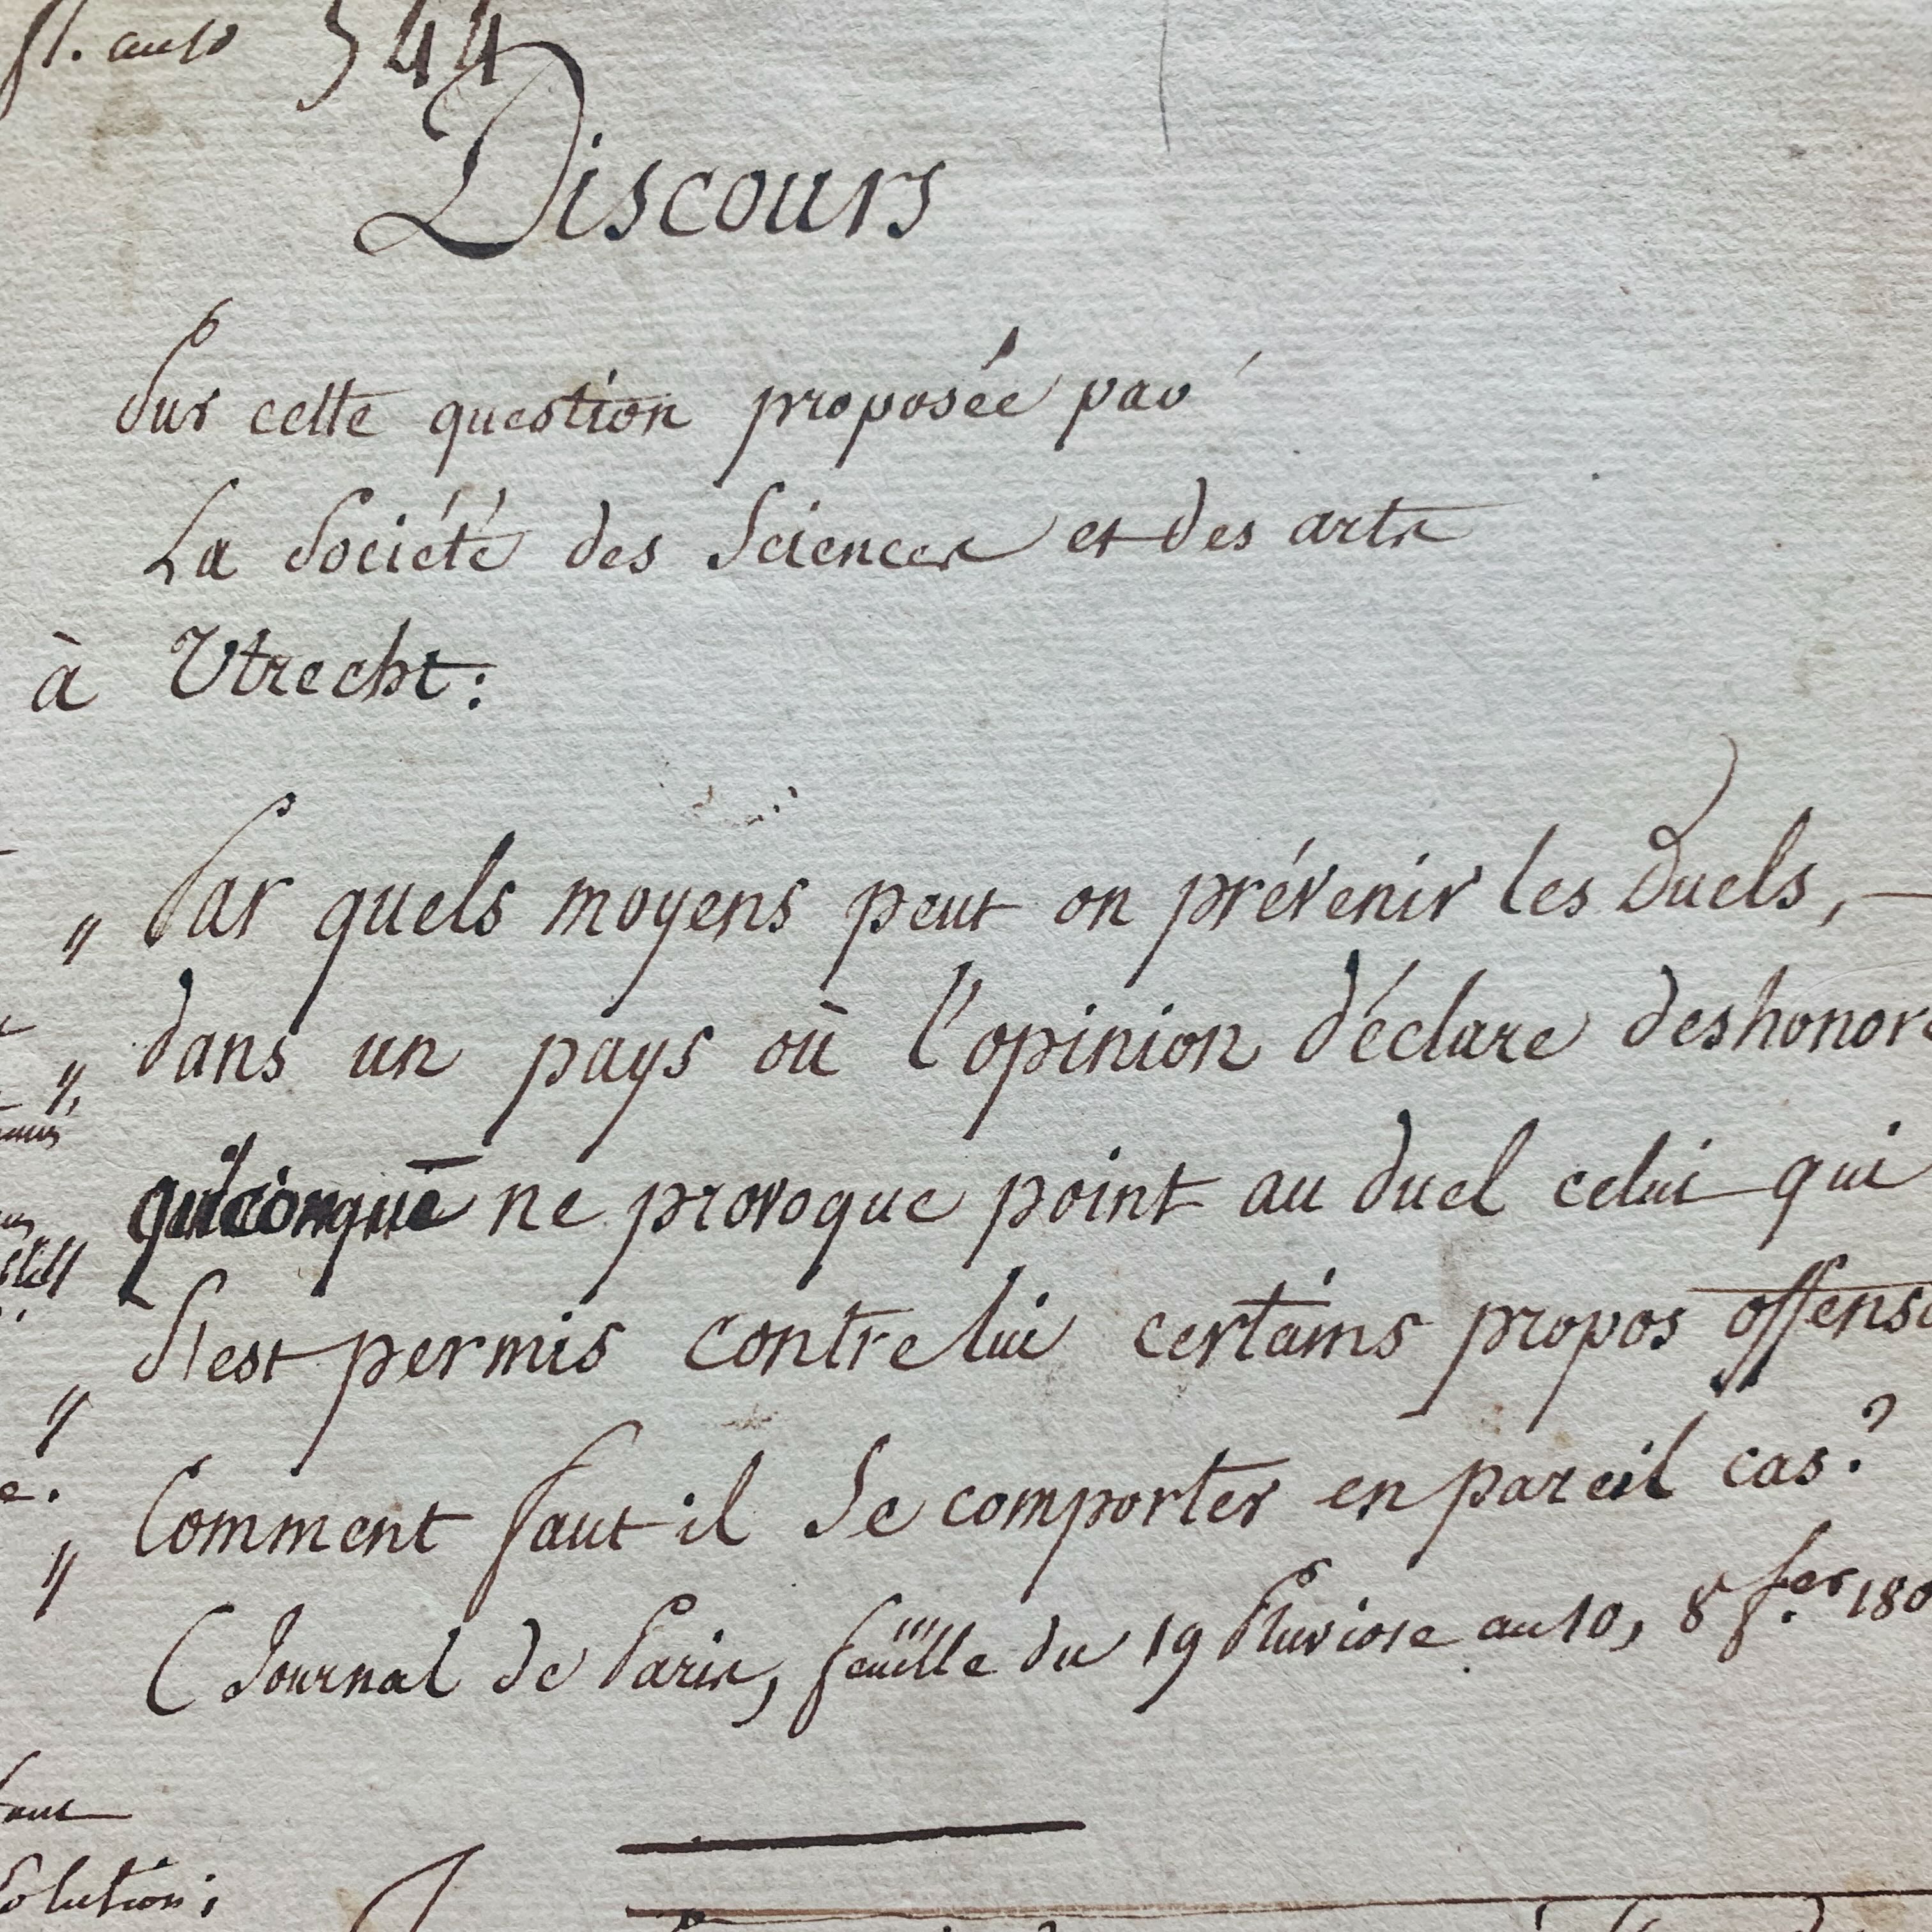 an 10 544
Discours
Sur cette question proposée par
La Société des Sciences et des arts
à Utrecht:
„ Par quels moyens peut on prévenir les Duels, —
„ dans un pays où l'opinion déclare deshonoré
„ quiconque ne provoque point au duel celui qui
„ S'est permis contre lui certains propos offensi
„ Comment faut il Se comporter en pareil cas?
( Journal de Paris, feuille du 19 Pluviose an 10, 8 fer 180
Solution;